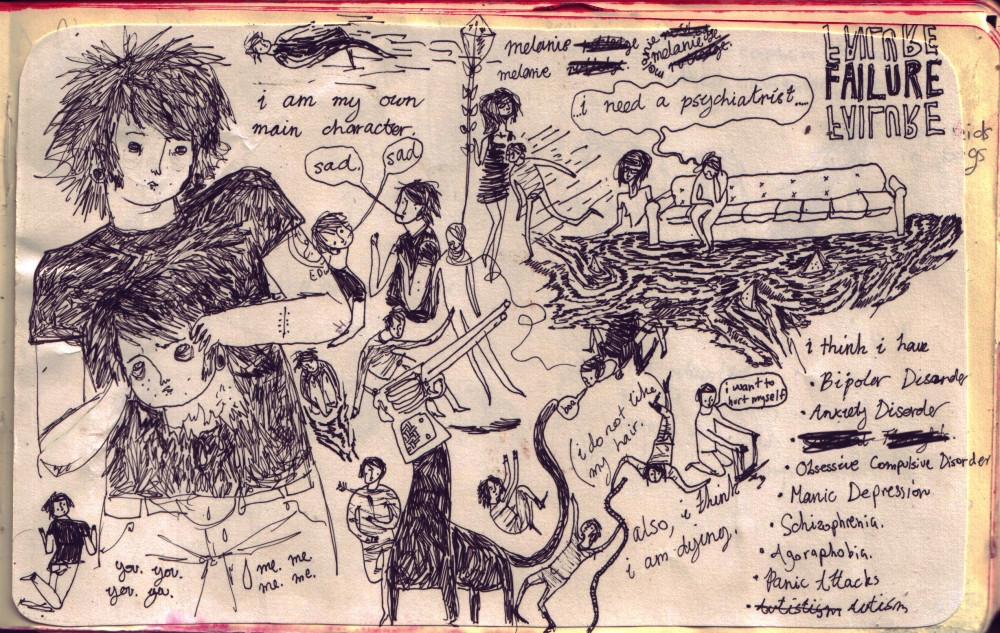 i am my own
main character.
melanie
melanie
melanie
FAILURE
FAILURE
FAILURE
...i need a psychiatrist....
sad.
sad
i think i have
• Bipolar Disorder
• Anxiety Disorder
• Obsessive Compulsive Disorder
• Manic Depression
• Schizophrenia.
• Agoraphobia.
• Panic Attacks
• Autism
i want to
hurt myself
boo
i do not like
my hair.
also, i think
i am dying.
you. you.
you. you.
me. me
me. me.